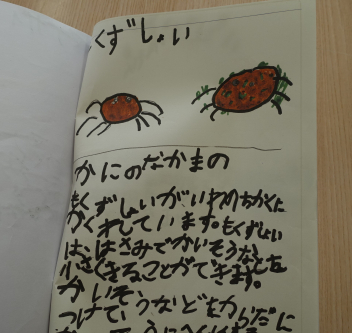 くずしょい
かにのなかまの
もくずしょいがいわのちかくに
かくれています。もくずしょい
は、はさみでかいそうなどを
小さくきることができます。
かいそ
つけてうなどをからだに